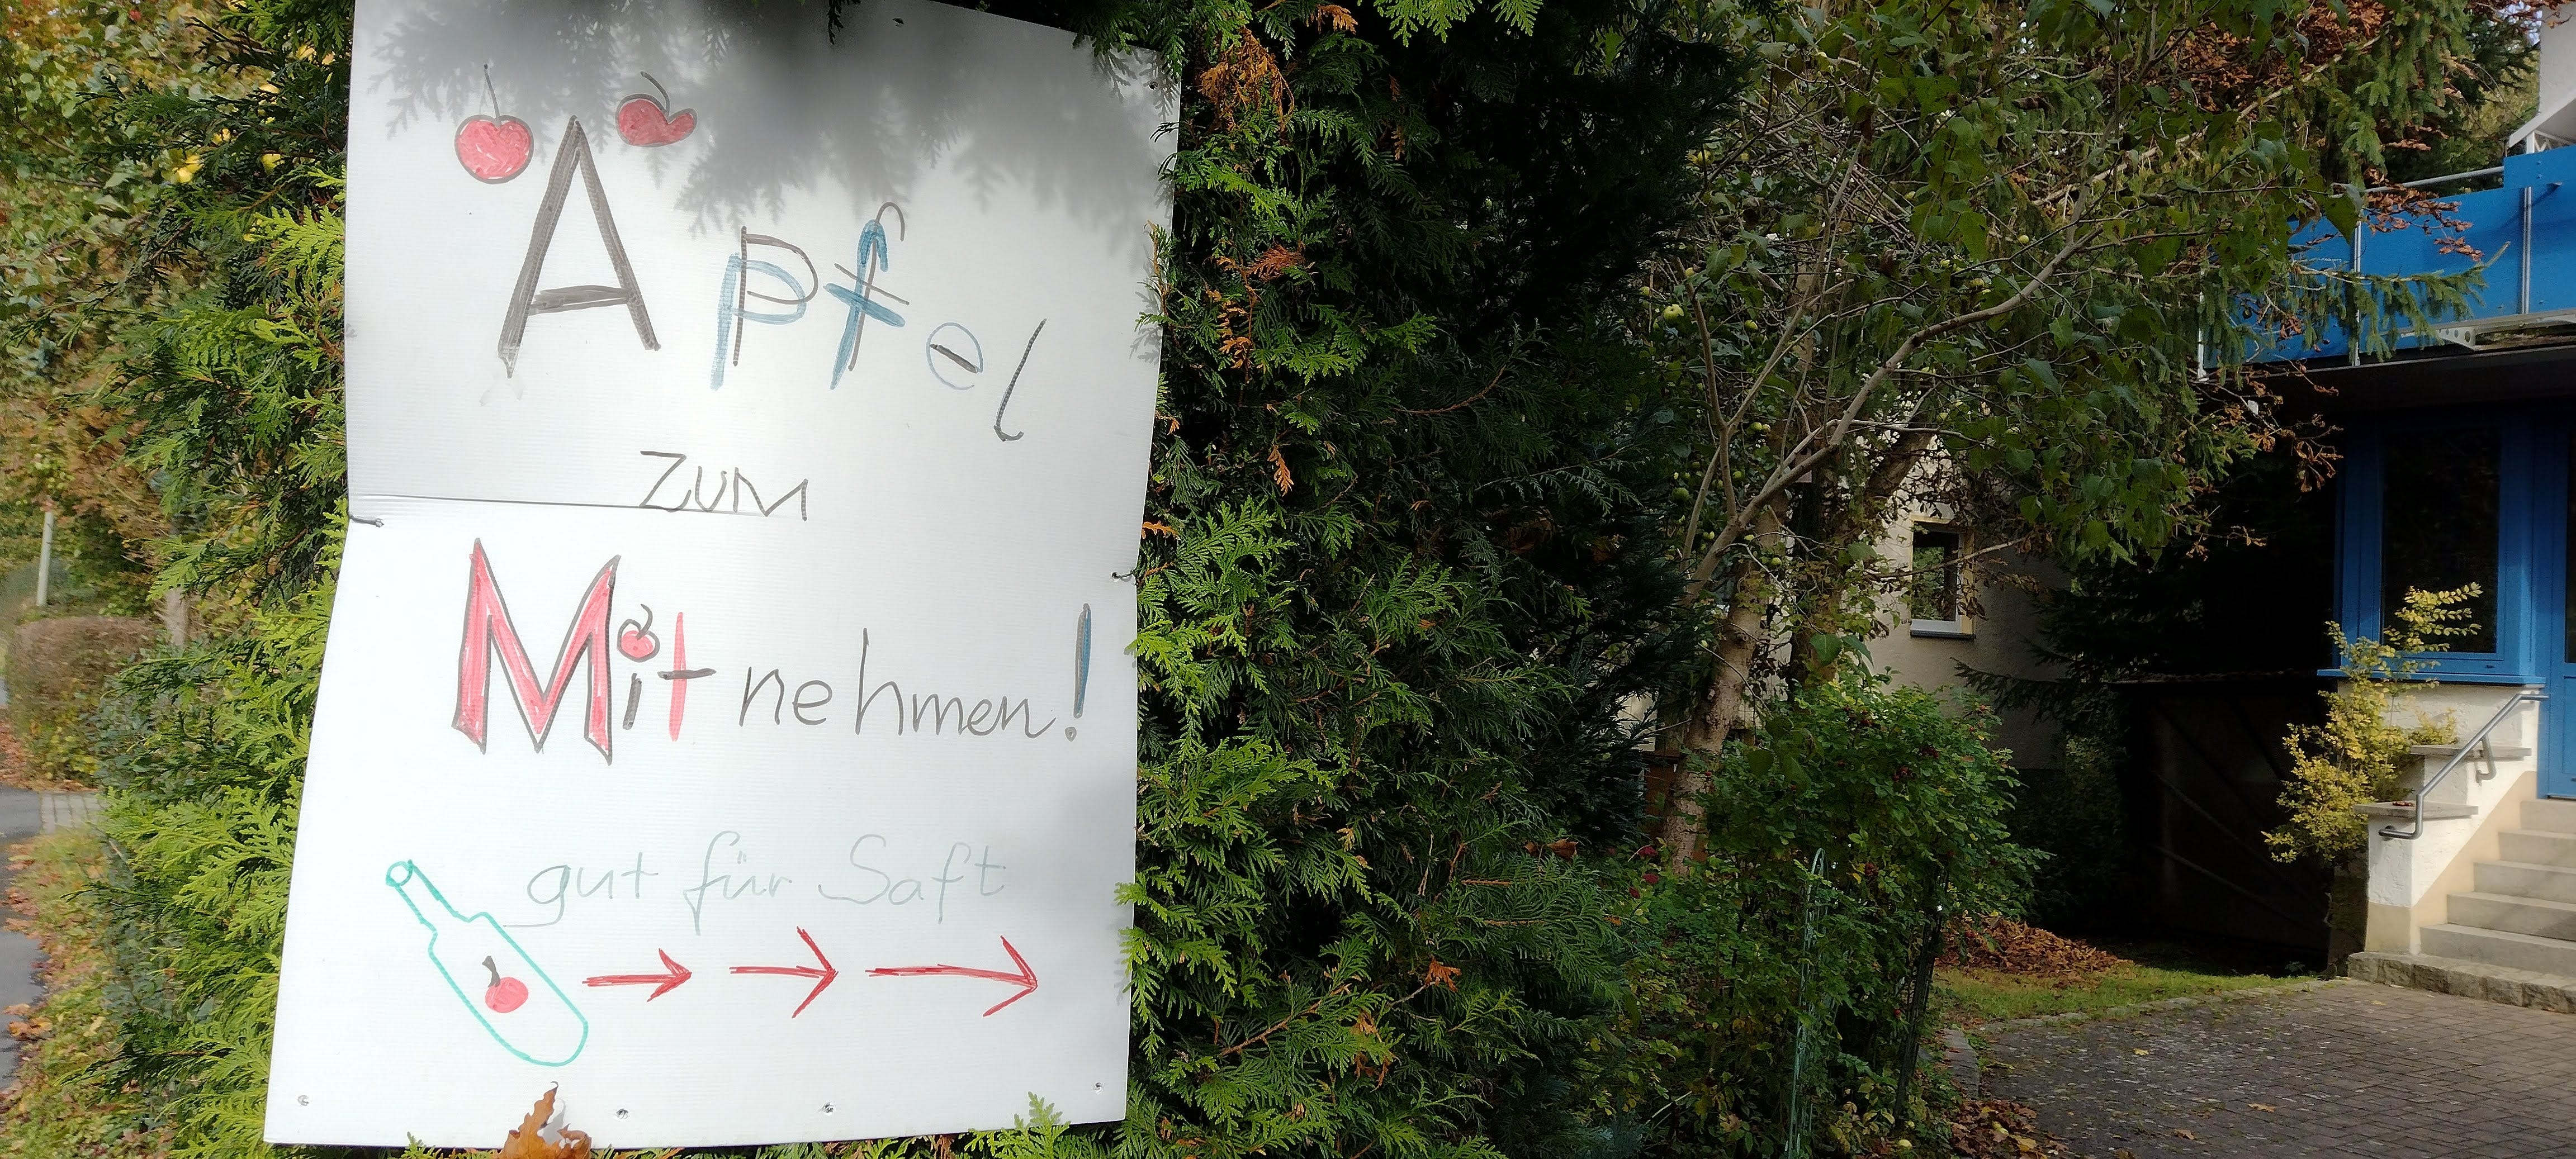 Äpfel
zum
Mitnehmen!
gut für Saft